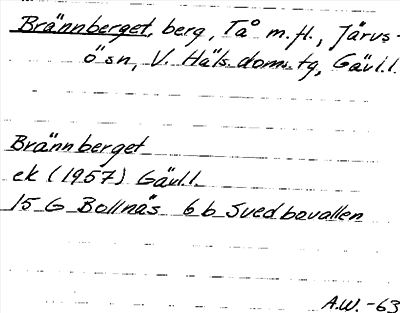 Brännberget, berg, Tå m.fl., Järvs-
ö sn, V. Häls. doms.tg, Gävl.l.
Brännberget
ek (1957) Gävl.l.
15 G Bollnäs 6 b Svedbovallen
A.W. -63